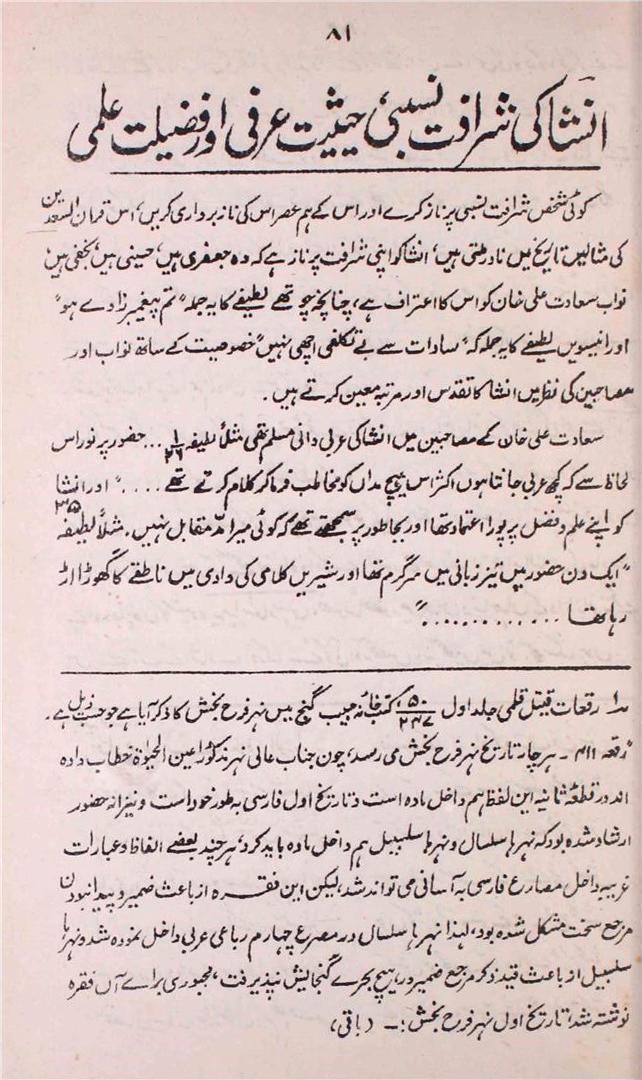 ۸۱
انشا کی شرافت نسبی، حیثیت عرفی اور فضیلت علمی
کوئی شخص شرافت نسبی پر ناز کرے اور اس کے ہم عصر اس کی ناز برداری کریں، اس قران السعدین
کی مثالیں تاریخ میں نادر ملتی ہیں، انشا کو اپنی شرافت پر ناز ہے کہ وہ جعفری ہیں، حسینی ہیں، نجفی ہیں
نواب سعادت علی خان کو اس کا اعتراف ہے، چنانچہ چوتھے لطیفے کا یہ جملہ "تم پیغمبر زادے ہو"
اور انیسویں لطیفے کا یہ جملہ کہ "سادات سے بے تکلفی اچھی نہیں" خصوصیت کے ساتھ نواب اور
مصاحبین کی نظر میں انشا کا تقدس اور مرتبہ معین کرتے ہیں۔
سعادت علی خان کے مصاحبین میں انشا کی عربی دانی مسلم تھی مثلاً لطیفہ ... حضور پر نور اس
لحاظ سے کہ کچھ عربی جانتا ہوں اکثر اس ہیچ مداں کو مخاطب فرما کر کلام کرتے تھے ...." اور انشا
کو اپنے علم و فضل پر پورا اعتماد تھا اور بجا طور پر سمجھتے تھے کہ کوئی میرا مد مقابل نہیں۔ مثلاً لطیفہ ۳۵
"ایک دن حضور میں تیز زبانی میں سرگرم تھا اور شیریں کلامی کی وادی میں ناطقے کا گھوڑا اڑ
رہا تھا ............."
۱؎ رقعات قتیل قلمی جلد اول ۵۰/۲۳۷ کتب خانہ حبیب گنج میں نہر فرح بخش کا ذکر آیا ہے جو حسب ذیل ہے۔
رقعہ ۱۱۴ - ہر چار تاریخ نہر فرح بخش می رسد، چون جناب عالی نہر مذکور را عین الحیوٰۃ خطاب دادہ
اند در قطعۂ ثانیہ این لفظ ہم داخل مادہ است و تاریخ اول فارسی بہ طور خود است و نیز انہ حضور
ارشاد شدہ بود کہ نہر ہا سلسال و نہر ہا سلسبیل ہم داخل مادہ باید کرد، ہر چند بعضے الفاظ و عبارات
غریبہ داخل مصارع فارسی بہ آسانی می تواند شد، لیکن این فقرہ از باعث ضمیر و پیدا نبودن
مرجع سخت مشکل شدہ بود، لہذا نہر ہا سلسال در مصرع چہارم رباعی عربی داخل نمودہ شد و نہر ہا
سلسبیل از باعث قید ذکر مرجع ضمیر در ہیچ بحرے گنجایش نپذیرفت، مجبوری براے آں فقرہ
نوشتہ شد، تاریخ اول نہر فرح بخش :- (باقی)